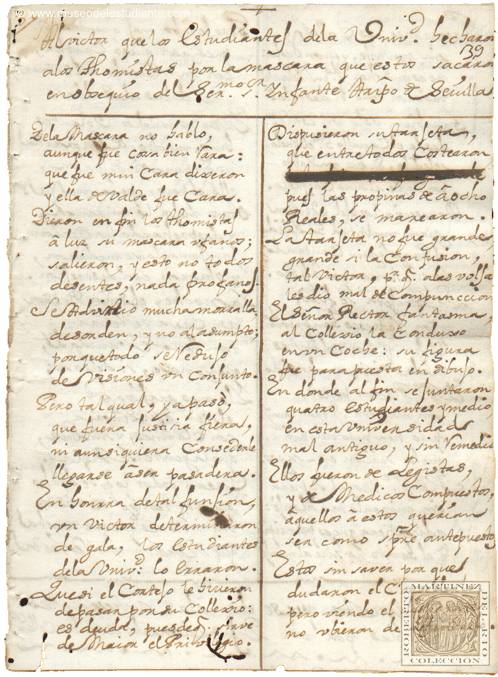 www.museodelestudiante.com
Al victor que los Estudiantes dela Univ.d hecharon
alos Thomistas por la mascara que estos sacaron
en obsequio del Ser.mo Sr. Infante Arzpo de Sevilla
39
Dela Mascara no hablo,
aunque fue cosa bien Rara:
que fue mui Cara dixeron
y ella de valde fue Cara.
Dieron en fin los thomistas
à luz su mascara ufanos;
salieron, y esto no todos
desentes, nada profanos.
Se advirtio mucha morralla
desorden, y no al asumpto;
porque todo se Redujo
de Visiones un Conjunto.
Pero tal qual, ya pasò,
que fuera justicia fiera,
ni aun siquiera Consederle
llegarse à ser pasadera.
En honrra de tal funsion,
un Victor determinaron
de gala, los Estudiantes
dela Univ.d lo erraron.
Que si el Cortejo le hizieron
de pasar por su Collexio:
es deuda, pues de
de Maior el Privilegio.
Dispusieron su tarjeta,
que entre todos Costearon
pues las propinas de à ocho
Reales, se marearon.
La tarjeta no fue grande
grande si la Confusion,
tal Victor, p.r q. alas
les dio mal de Compunccion
El señor Rector fantasma
al Collexio la Conduxo
en un Coche: su figura
fue para puesta en dibujo.
En donde al fin se juntaron
quatro estudiantes y medio
en esta Universidad
mal antiguo, y sin Remedio
Ellos fueron de Legistas,
y de Medicos Compuestos,
àquellos à estos querian
ser como spre antepuestos
Estos sin saver por que
dudaron el
pero viendo el
no ubieron de
ROBERTO MARTINEZ DEL RIO
COLECCION